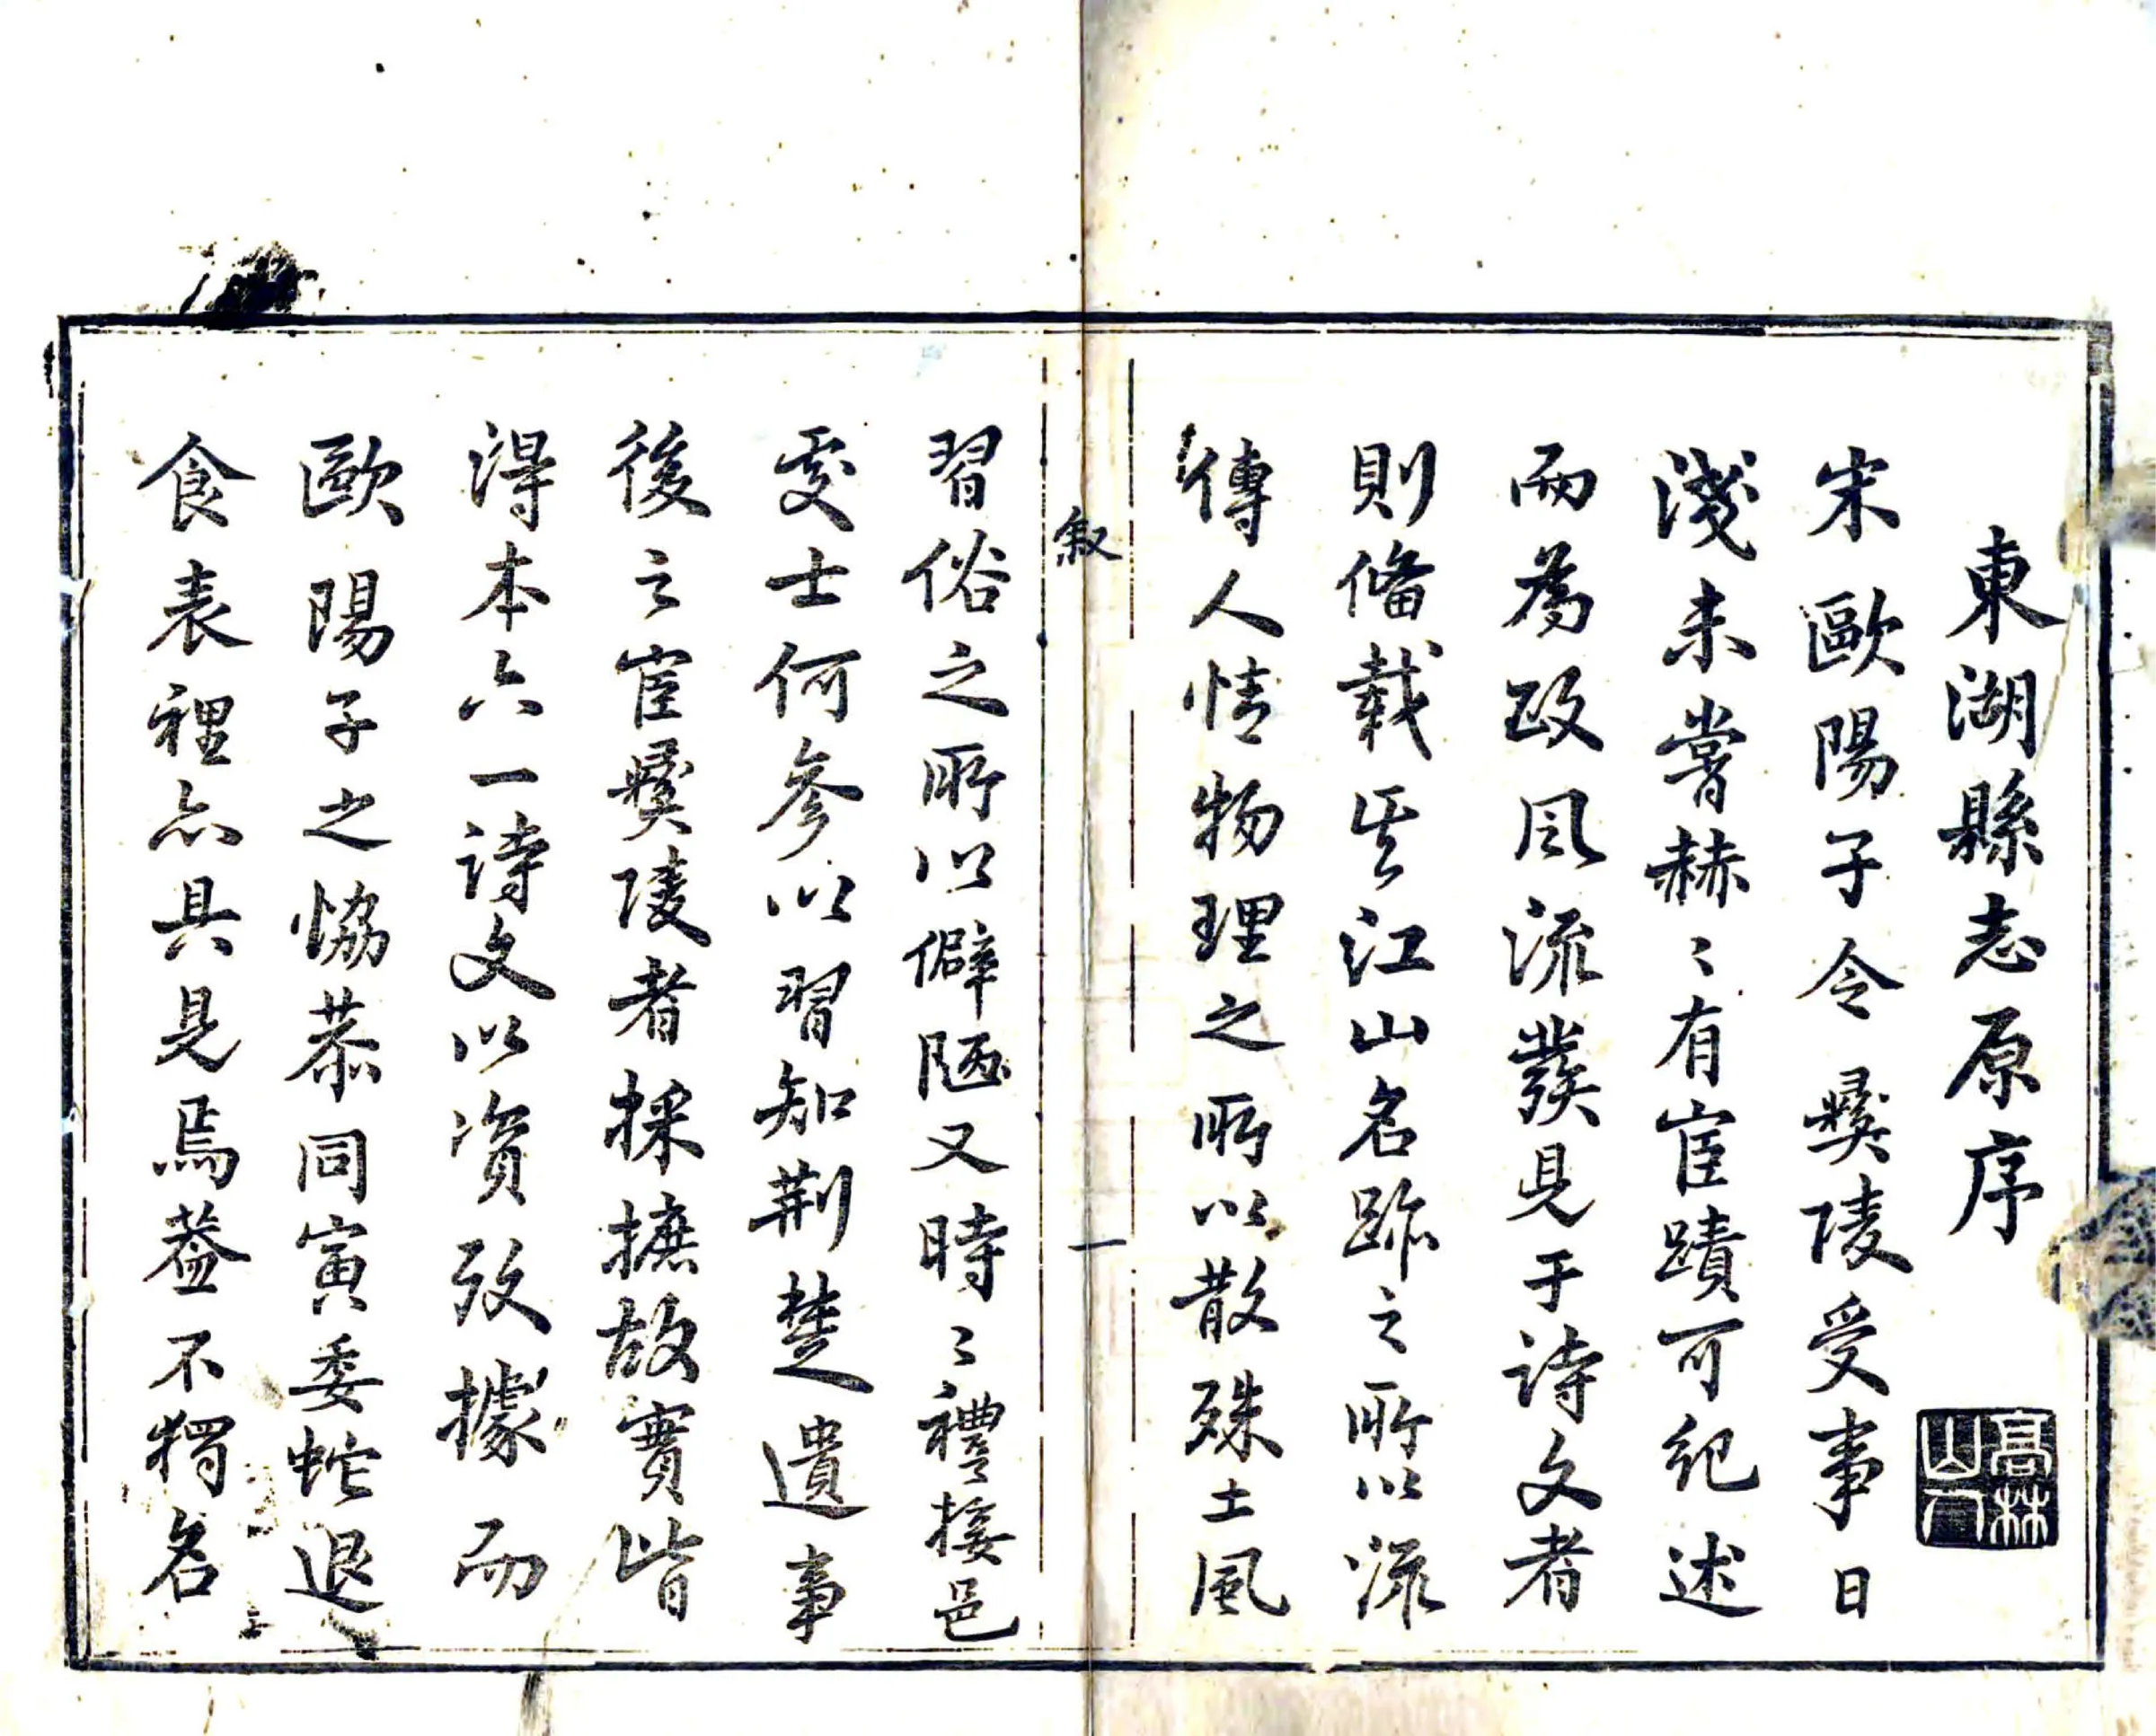 東湖縣志原序
高林山人
宋歐陽子令彛陵受事日
淺未嘗赫〻有宦蹟可紀述
而為政風流發見于詩文者
則備載其江山名跡之所以流
傳人情物理之所以散殊土風
敘
一
習俗之所以僻陋又時〻禮接邑
處士何參以習知荆楚遺事
後之宦彛陵者採摭故實皆
淂本六一詩文以資攷據而
歐陽子之恊恭同寅委蛇退
食表裡亦具見焉葢不獨名